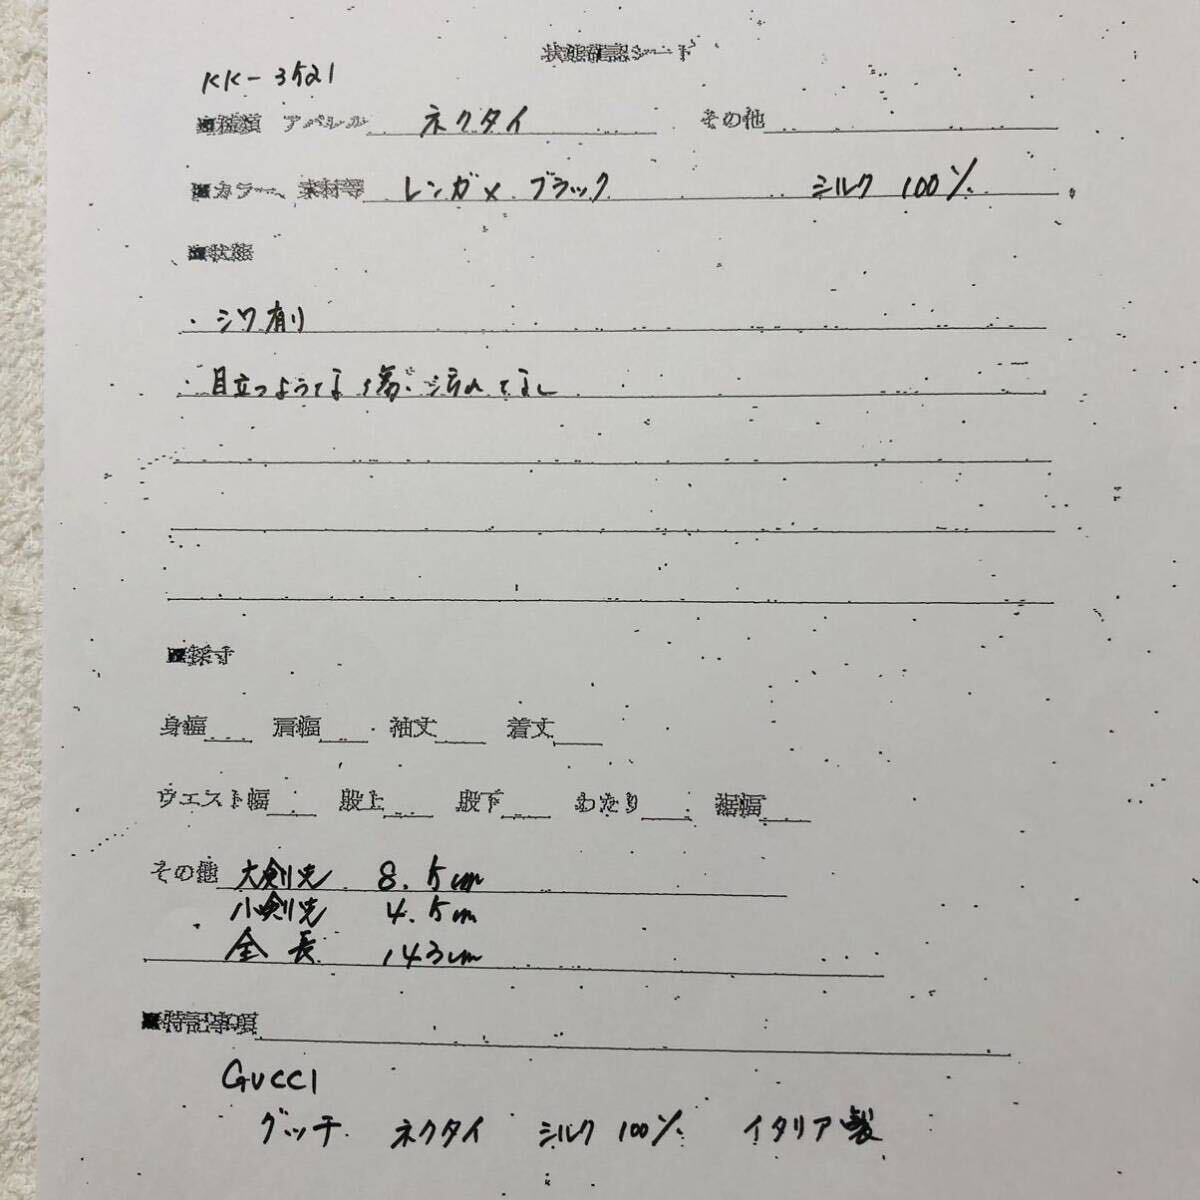 状態確認シート
KK-3521
■種類 アパレル ネクタイ その他
■カラー、素材等 レンガ×ブラック シルク 100%
■状態
・シワ有り
・目立つような傷・汚れなし
■採寸
身幅 肩幅 袖丈 着丈
ウエスト幅 股上 股下 わたり 裾幅
その他 大剣先 8.5cm
小剣先 4.5cm
全長 143cm
■特記事項
GUCCI
グッチ ネクタイ シルク 100% イタリア製